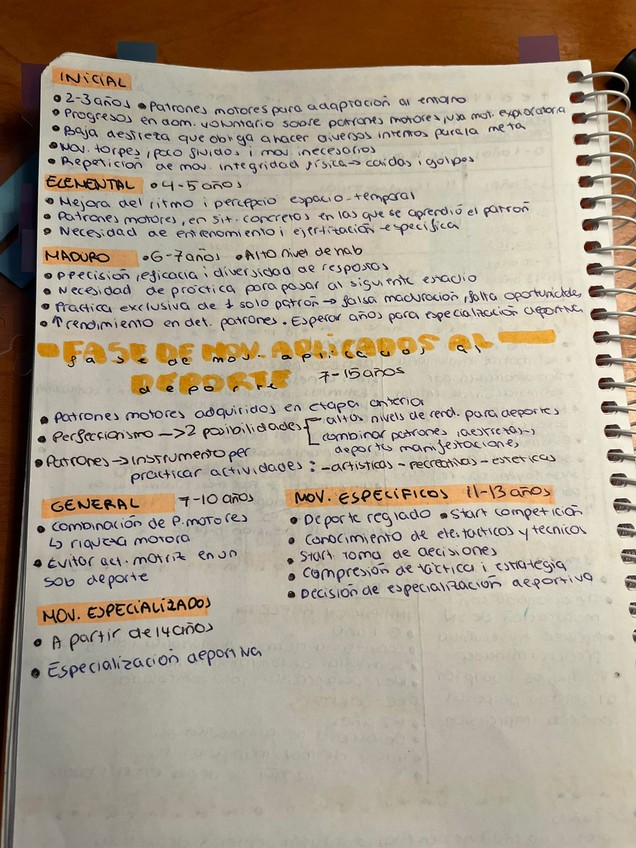 INICIAL
• 2-3 años • Patrones motores para adaptación al entorno
• Progresos en dom. voluntario sobre patrones motores, usa mot. exploratoria
• Baja destreza que obliga a hacer diversos intentos para la meta
• Mov. torpes, poco fluidos i mov inecesarios
• Repetición de mov. integridad física → caidas i golpes
ELEMENTAL • 4-5 años
• Mejora del ritmo i percepció espacio-temporal
• Patrones motores, en sit. concretas en las que se aprendió el patrón
• Necesidad de entrenamiento i ejercitación específica
MADURO • 6-7 años • Alto nivel de hab
• Precisión, eficacia i diversidad de respostas
• Necesidad de práctica para pasar al siguiente estadio
• Práctica exclusiva de 1 solo patrón → falsa maduración, falta oportunidades
• ↑ rendimiento en det. patrones. Esperar años para especialización deportiva
- FASE DE MOV. APLICADOS AL -
fase de mov. aplicados al
DEPORTE 7-15 años
deporte
• Patrones motores adquiridos en etapa anterior
• Perfeccionismo → 2 posibilidades - altos nivels de rend. para deportes
combinar patrones, destretas →
deportes manifestaciones
• Patrones → instrumento per
practicar actividades: - artísticas - recreativas - esteticas
GENERAL 7-10 años
• Combinación de P. motores
↳ riqueza motora
• Evitar act. motriz en un
sob deporte
MOV. ESPECÍFICOS 11-13 años
• Deporte reglado • Start competición
• Conocimiento de ele. tacticos y tecnicos
• Start toma de decisiones
• Compresión de táctica i estrategia
• Decisión de especialización deportiva
MOV. ESPECIALIZADOS
• A partir de 14 años
• Especialización deportiva